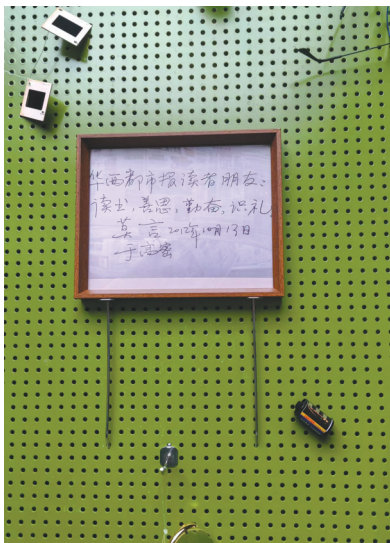 华西都市报读者朋友：
读书，善思，勤奋，识礼
莫言 2012年10月13日
于高密